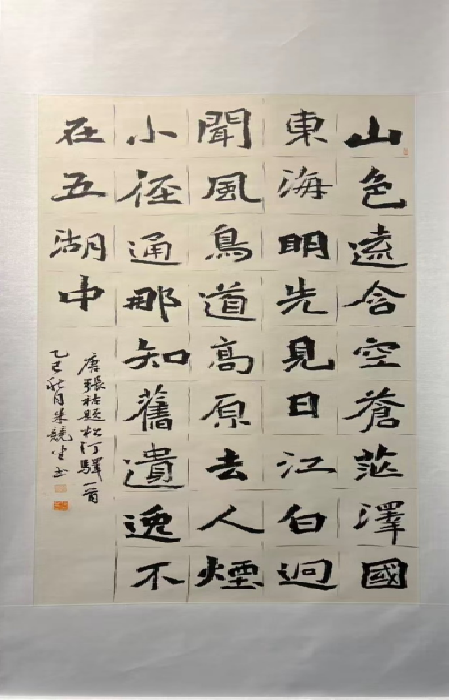 山色遠含空蒼茫澤國
東海明先見日江白迥
聞風鳥道高原去人煙
小徑通那知舊遺逸不
在五湖中
唐張祜題松汀驛一首
乙巳秋月